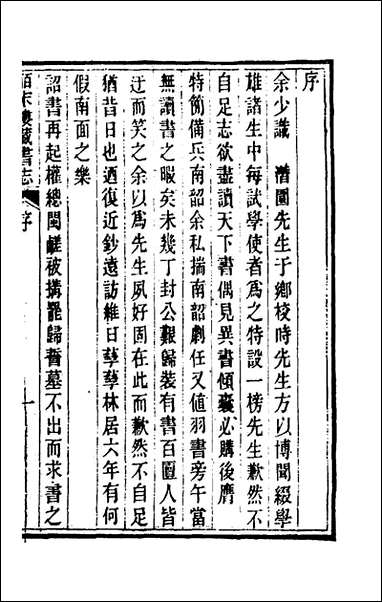 序
余少識　濳園先生于鄉校時先生方以博聞綴學
雄諸生中每試學使者爲之特設一榜先生歉然不
自足志欲盡讀天下書偶見異書傾囊必購後膺
特簡備兵南韶余私揣南韶劇任又值羽書旁午當
無讀書之暇矣未幾丁封公艱歸裝有書百匱人皆
迂而笑之余以爲先生夙好固在此而歉然不自足
猶昔日也迺復近鈔遠訪維日孳孳林居六年有何
假南面之樂
詔書再起權總閩鹺被搆罷歸誓墓不出而求書之
皕宋樓藏書志　序　一